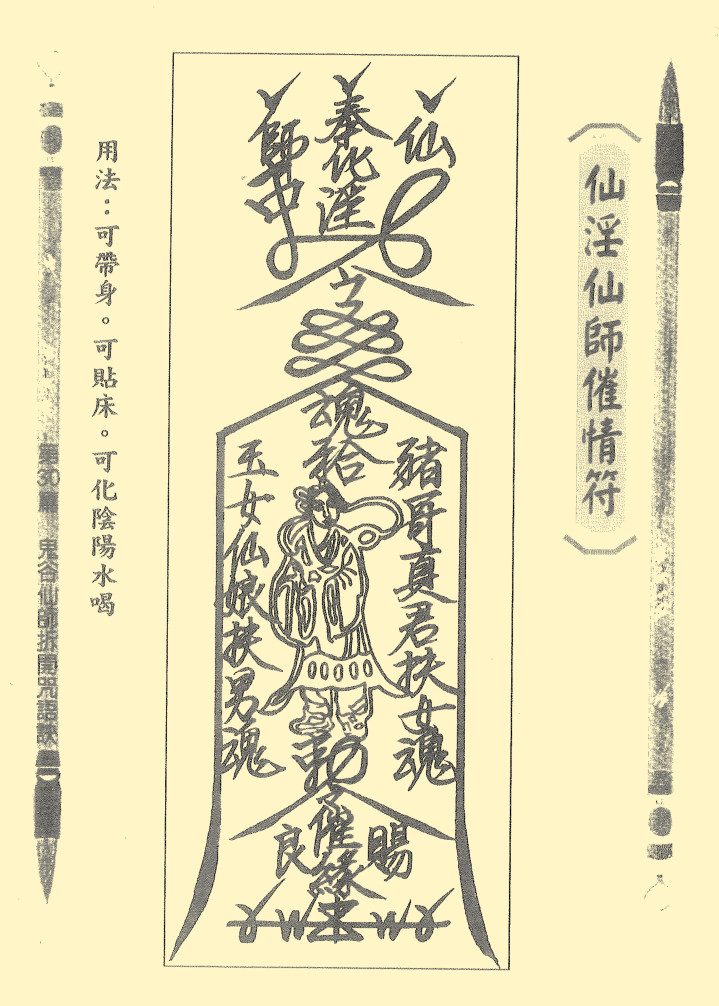 仙淫仙師催情符
仙
奉化淫
師中
魂
豬哥真君扶女魂
玉女仙娘扶男魂
催緣
賜
良
用法：可帶身。可貼床。可化陰陽水喝
第30篇 鬼谷仙師拆開咒語訣